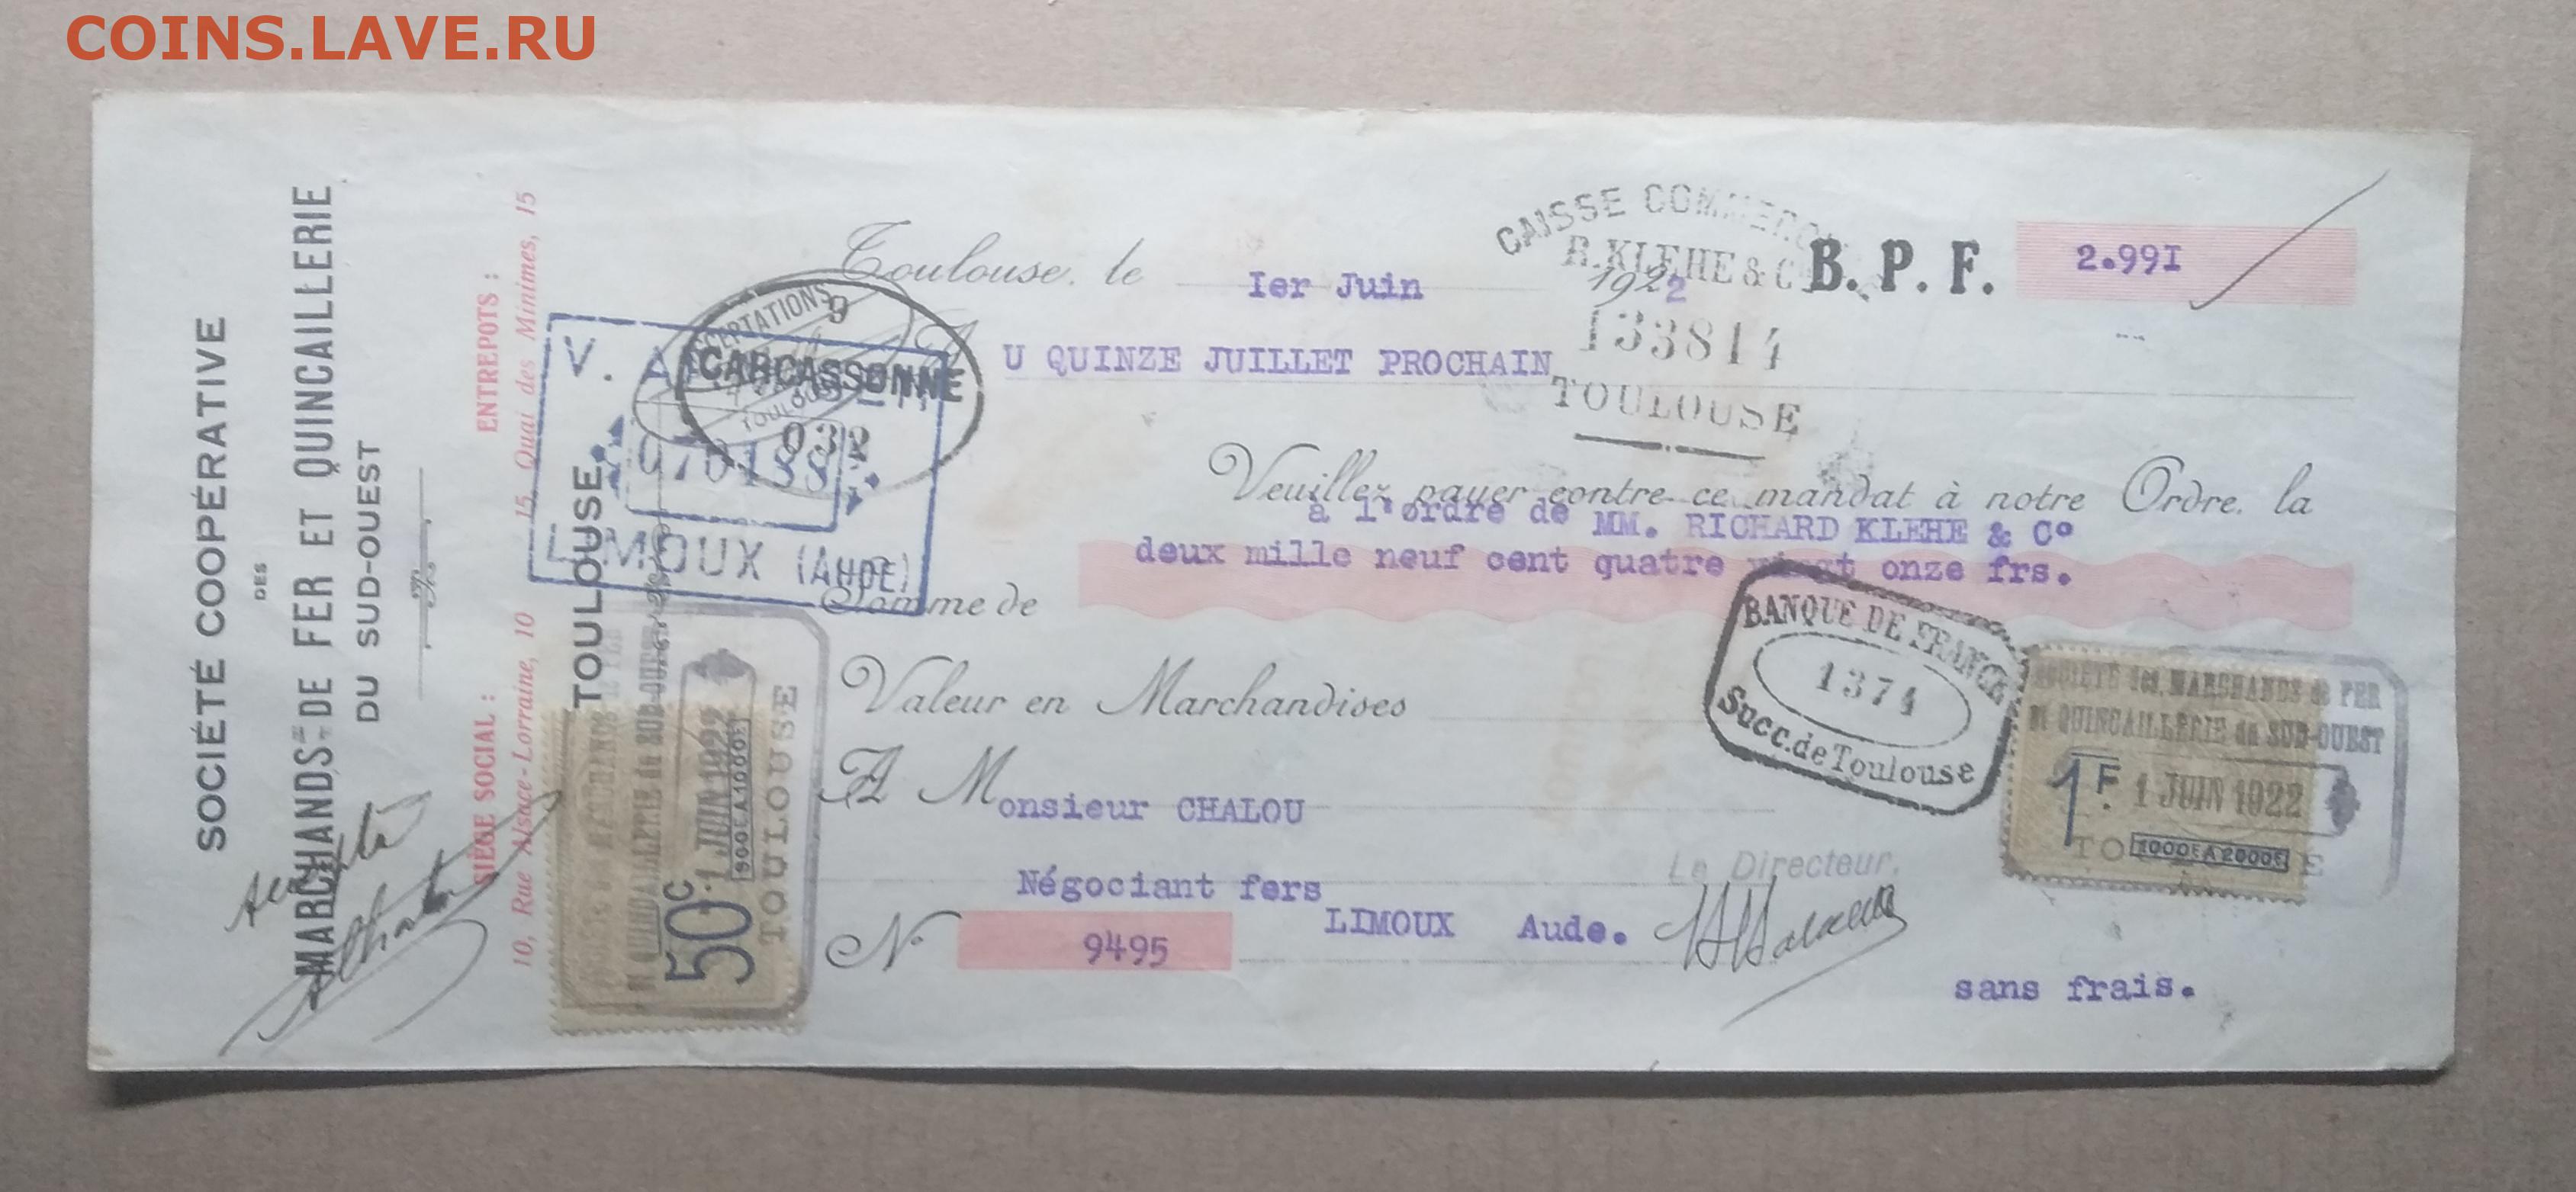 COINS.LAVE.RU
SOCIÉTÉ COOPÉRATIVE
DES
MARCHANDS DE FER ET QUINCAILLERIE
DU SUD-OUEST
ENTREPOTS :
15, Quai des Minimes, 15
SIÈGE SOCIAL :
10, Rue Alsace-Lorraine, 10
TOULOUSE
Toulouse, le Ier Juin 1922
B. P. F. 2.99I
CAISSE
R. KLEHE & C
133814
TOULOUSE
U QUINZE JUILLET PROCHAIN
CARCASSONNE
TOULOUSE
V.
LIMOUX (AUDE)
Veuillez payer contre ce mandat à notre Ordre, la
à l'ordre de MM. RICHARD KLEHE & Cº
Somme de deux mille neuf cent quatre vingt onze frs.
Valeur en Marchandises
BANQUE DE FRANCE
1374
Succ. de Toulouse
SOCIÉTÉ des MARCHANDS de FER
et QUINCAILLERIE du SUD-OUEST
1F
1 JUIN 1922
A Monsieur CHALOU
Négociant fers
LIMOUX Aude.
Le Directeur,
Nº 9495
sans frais.
50c
1 JUIN 1922
TOULOUSE
accepté